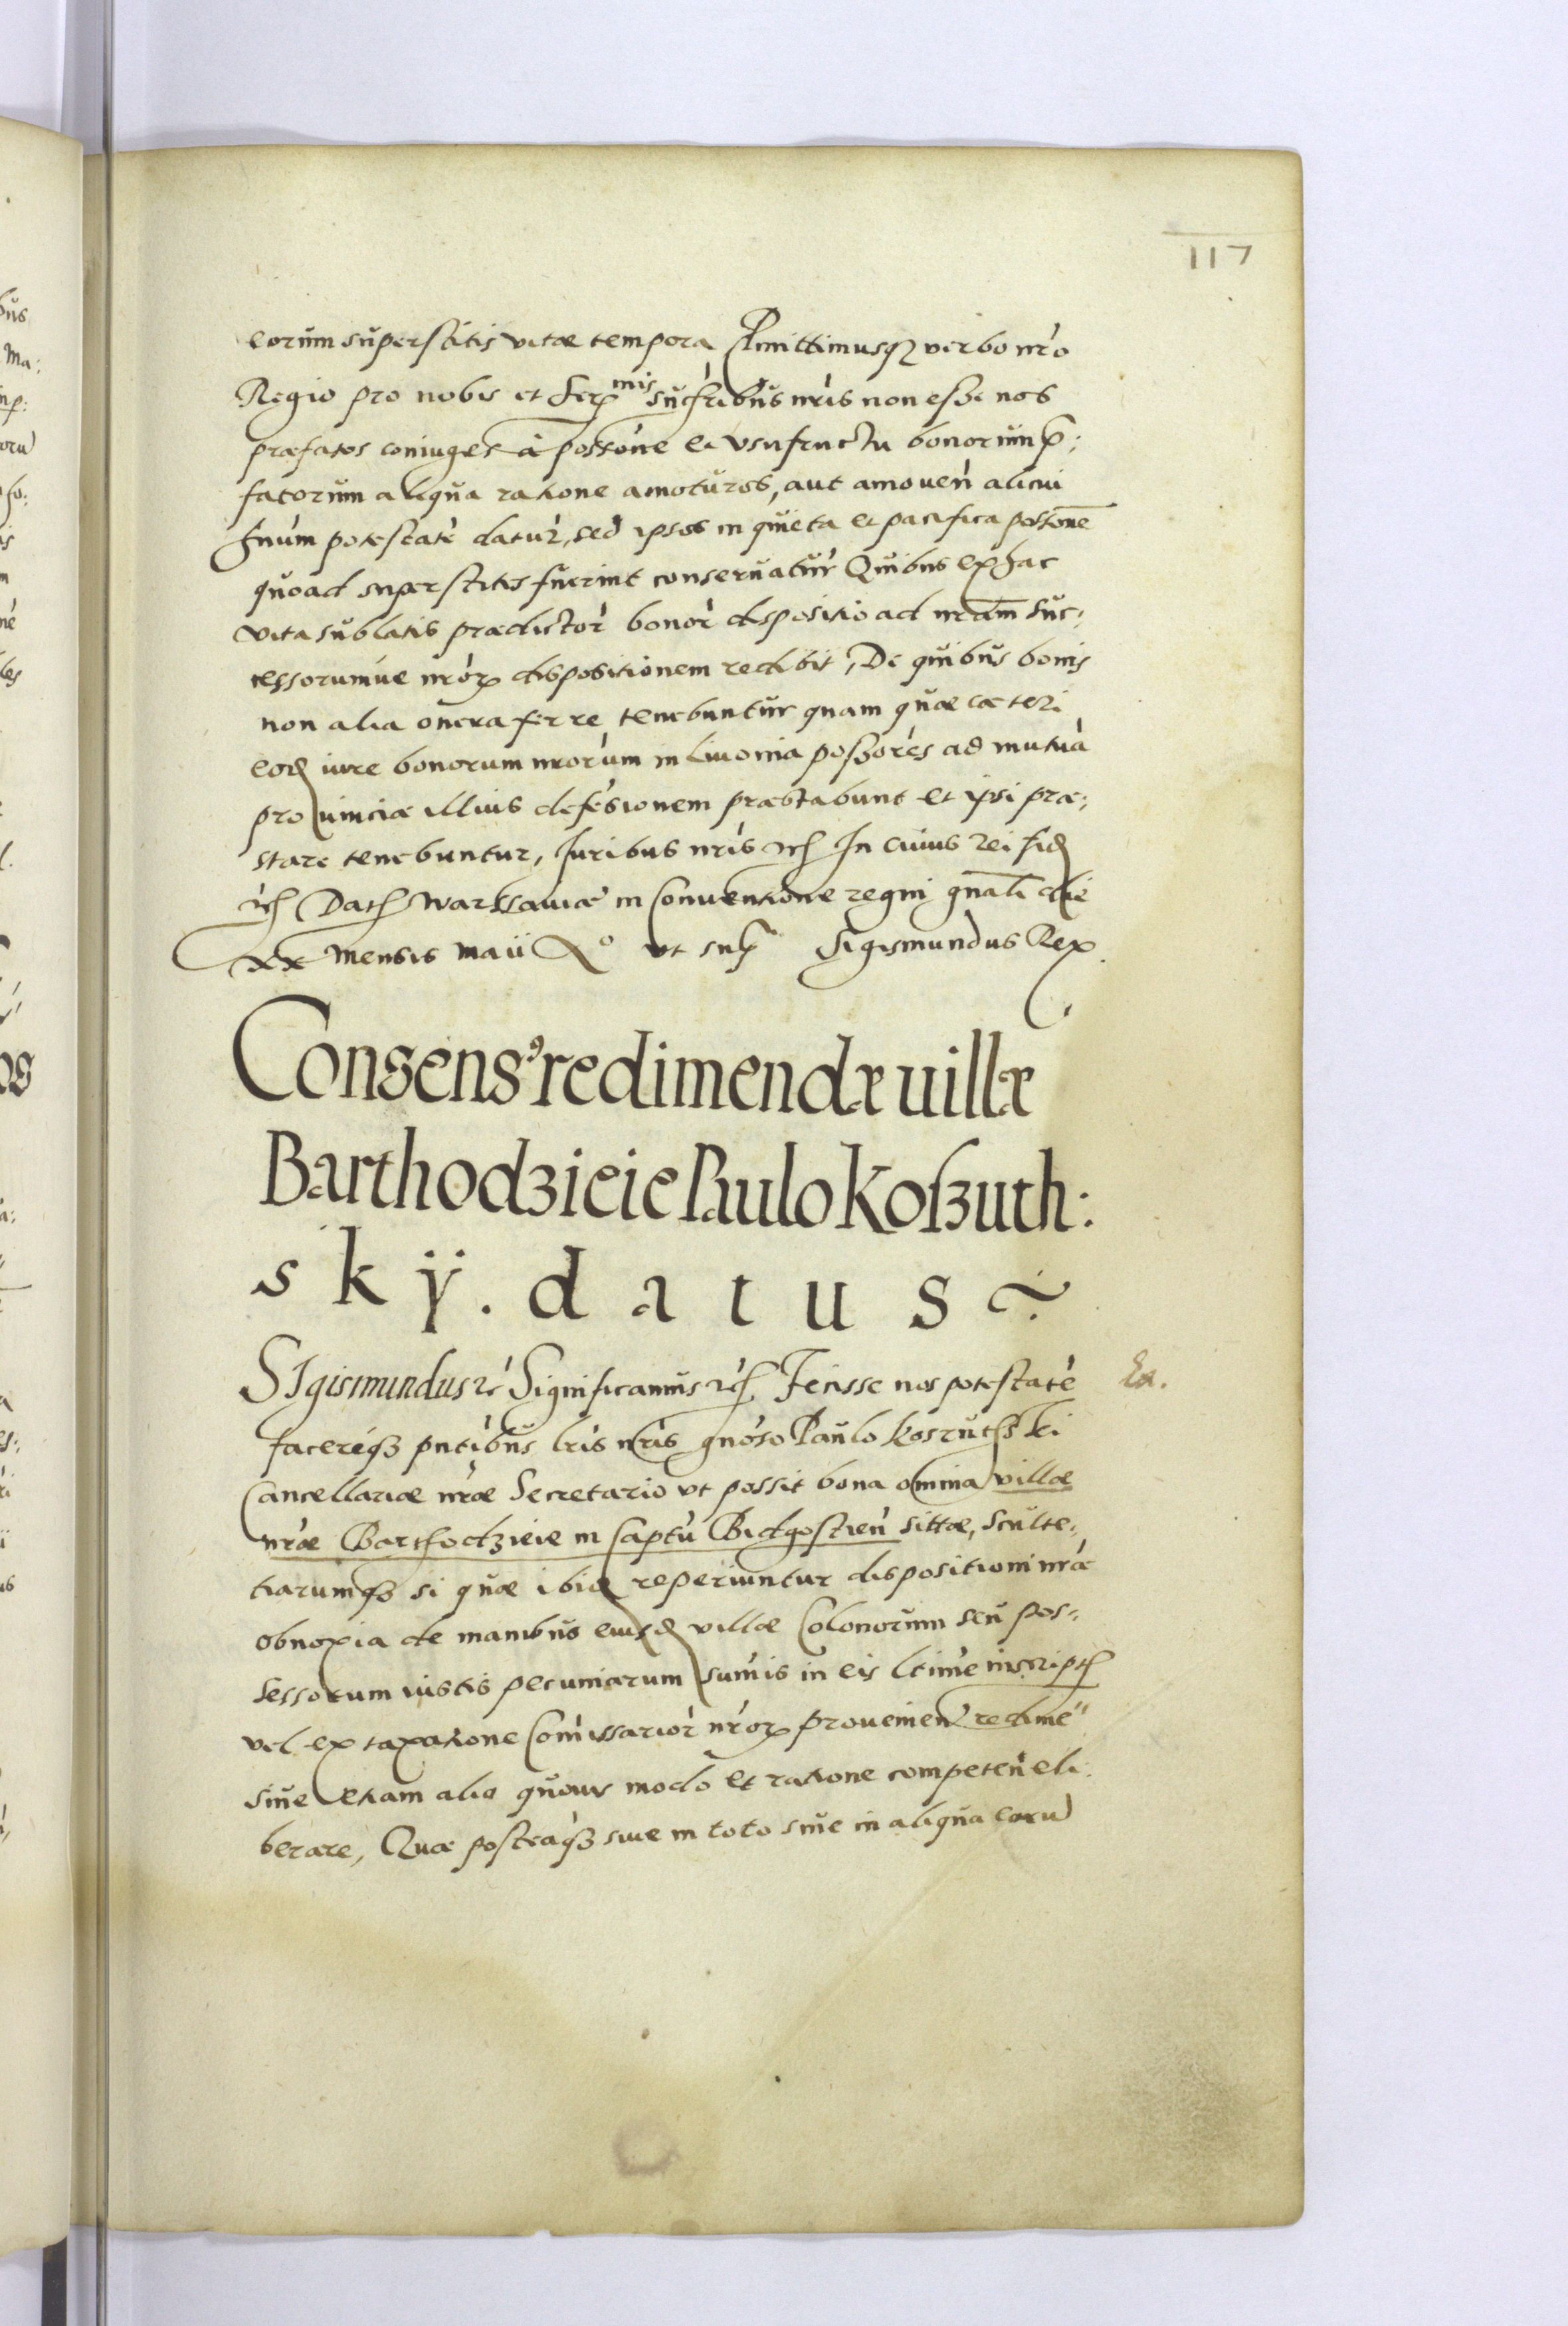 117
eorum superstitis vitae tempora Pmittimusqʒ verbo nro
Regio pro nobis et Ser mis sucribus nris non esse nos
praefatos coniuges à possone et vsufructu bonorum p:
fatorum aliqua ratione amoturos, aut amouen alicui
hnum potestate datur, sed ipsos in quieta et pacifica possone
quoad superstites fuerint conseruatur Quibus ex hac
vita sublatis praedictor bonor dispositio ad nram suc:
cessorumue nror dispositionem redibit, De quibus bonis
non alia onera ferre tenebuntur quam quae caeteri
eod iure bonorum nrorum in Liuonia possores ad mutua
prouinciae illius defesionem praestabunt et ipsi prae:
stare tenebuntur, Iuribus nris In cuius rei fid
Dat Warssauiae in Conuentione regni gnali die
xx mensis maii ut sup Sigismundus Rex
Consens9 redimendae uillae
Barthodzieie Paulo Koszuth:
skÿ. datus
SIgismundus Significamus Fecisse nos potestate Ex.
facereqʒ pntibus lris nris gnoso Paulo Koszutski
Cancellariae nrae Secretario vt possit bona omnia villae
nrae Barthodzieie in Captu Bidgostien sittae, sculte:
tiarumqʒ si quae ibid reperiuntur dispositioni nrae
obnoxia de manibus eiusd villae Colonorum seu pos:
sessorum iustis pecuniarum sumis in eis ltime inscript
vel ex taxatione Comissarior nror prouenien redime
siue etiam alio quouis modo et ratione competen eli
berare, Quae posteaqʒ siue in toto siue in aliqua eoru